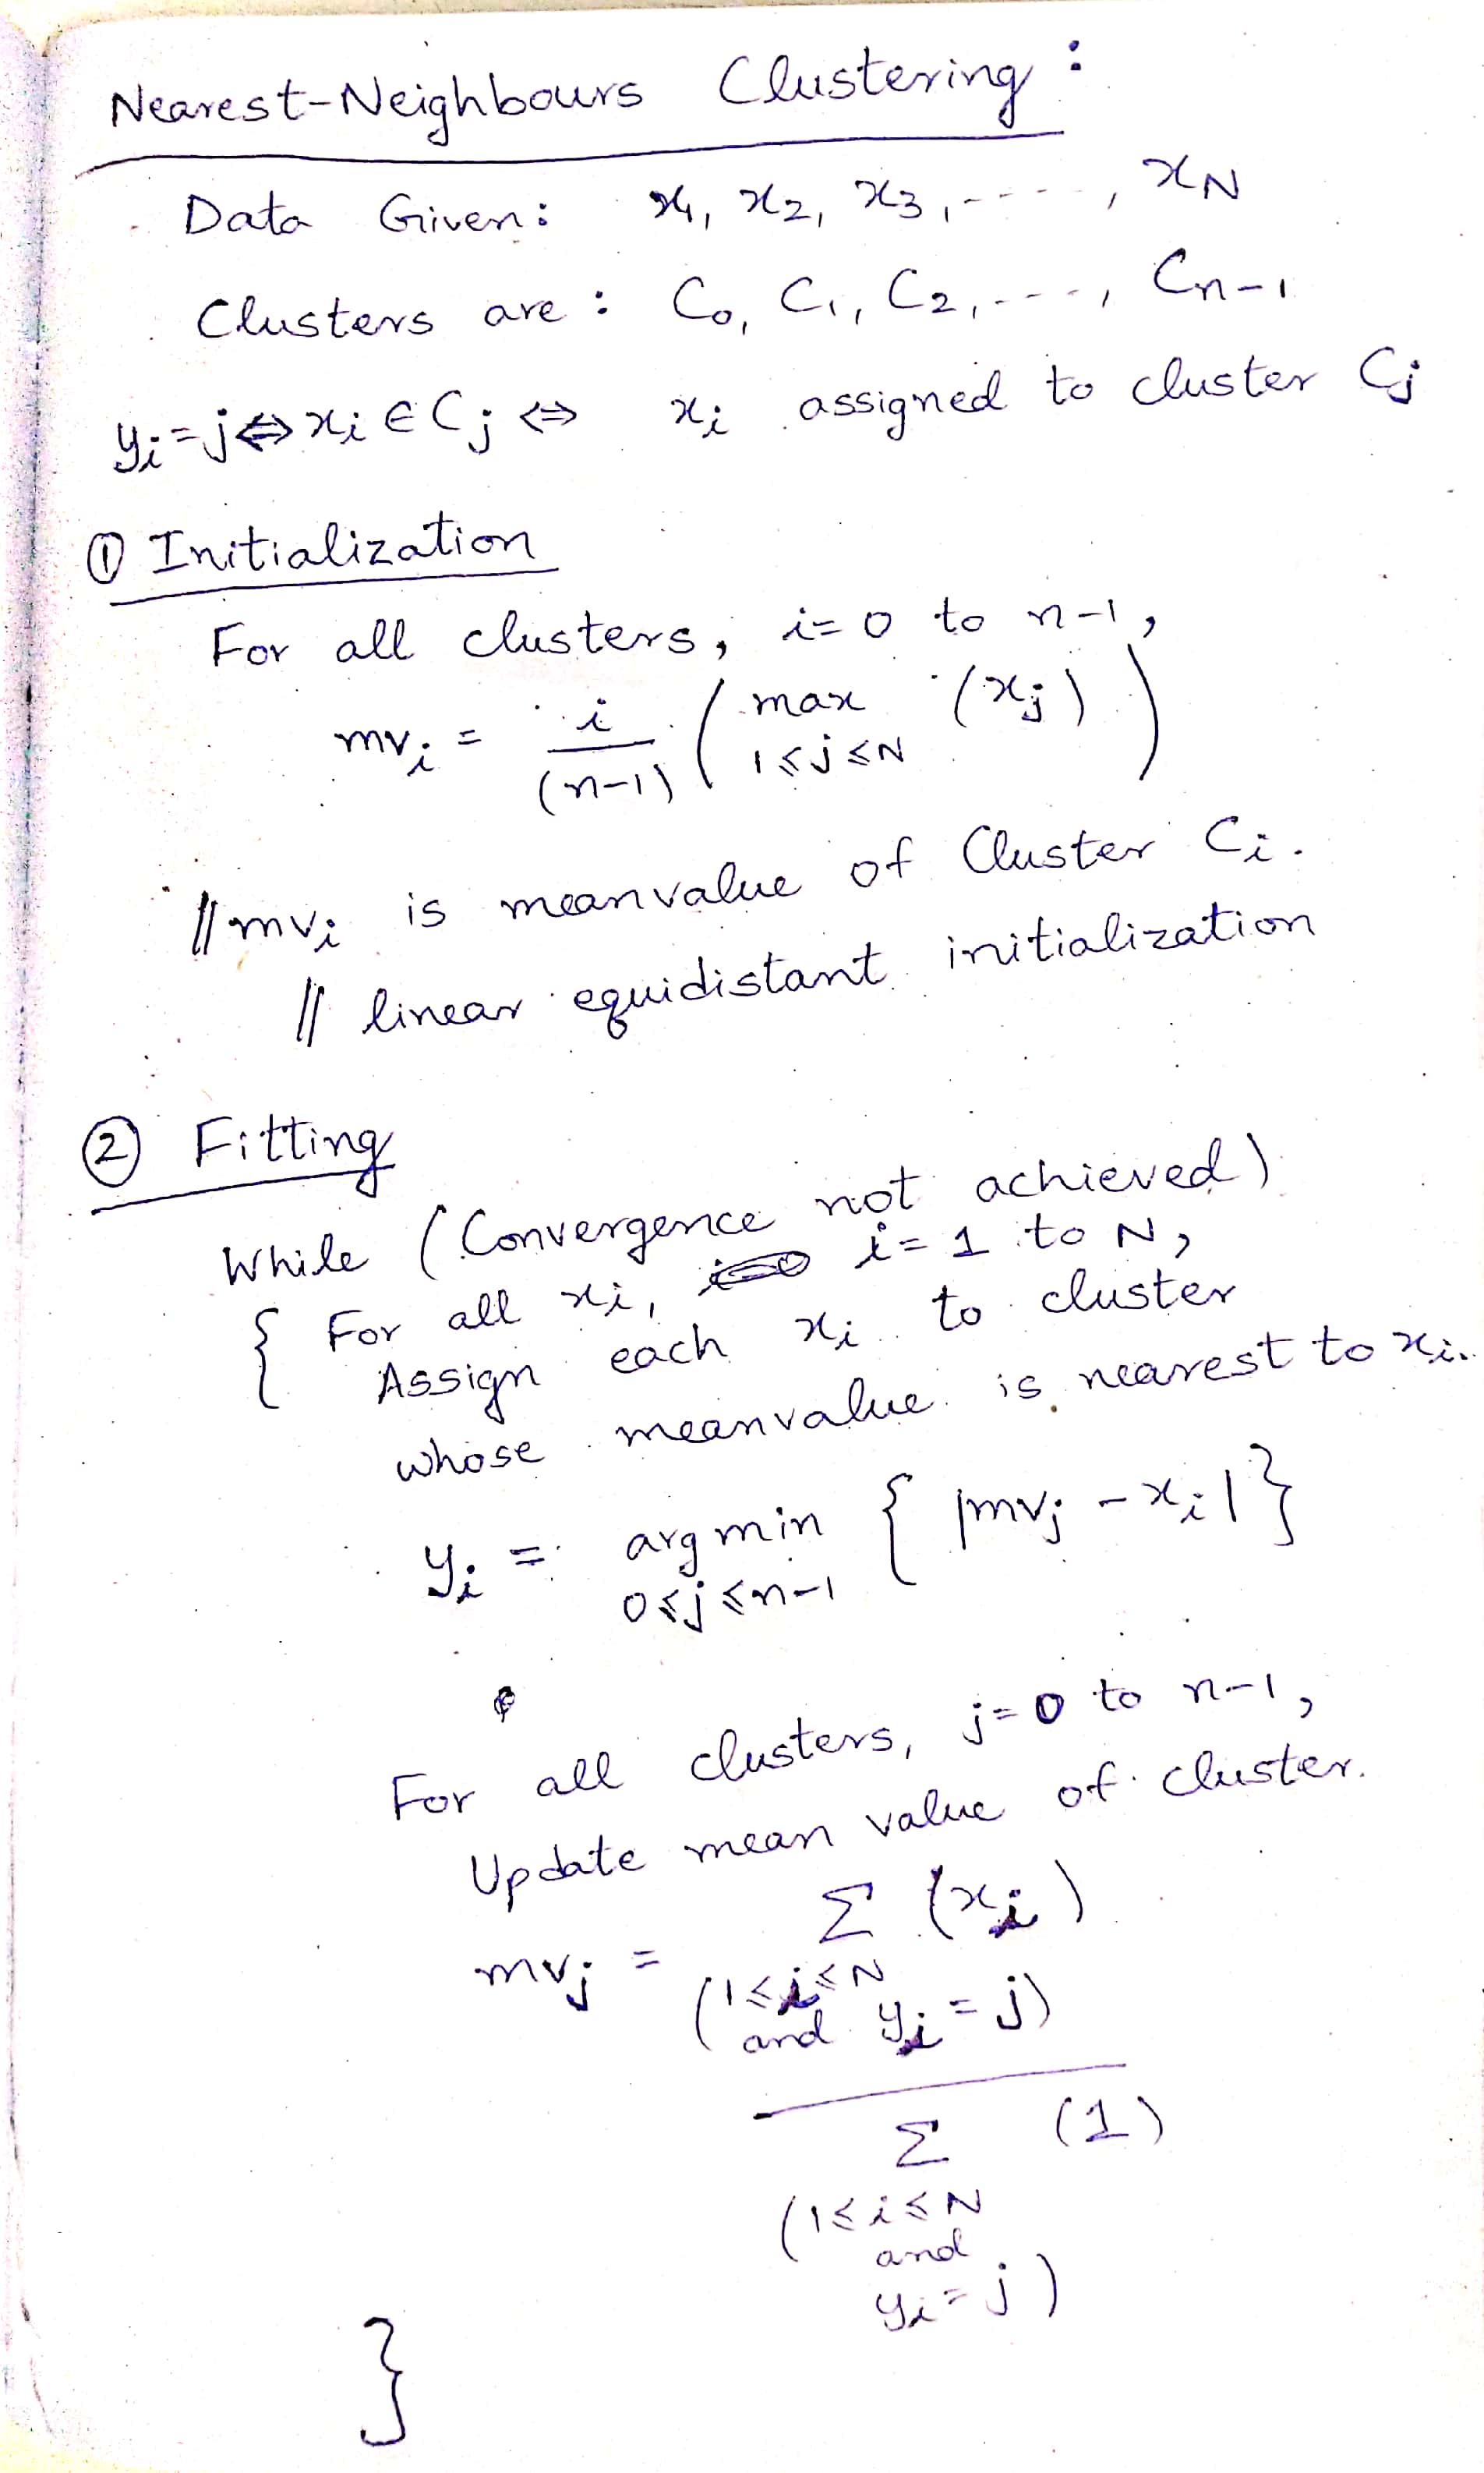 Nearest-Neighbours Clustering:
Data Given: x₁, x₂, x₃, ----, x_N
Clusters are: C₀, C₁, C₂, ---, C_{n-1}
y_i = j ⇔ x_i ∈ C_j ⇔ x_i assigned to cluster C_j
① Initialization
For all clusters, i=0 to n-1,
mv_i = i/(n-1) ( max_{1≤j≤N} (x_j) )
// mv_i is meanvalue of Cluster C_i.
// linear equidistant initialization
② Fitting
While (Convergence not achieved)
{ For all x_i, i=1 to N,
Assign each x_i to cluster
whose meanvalue is nearest to x_i.
y_i = argmin_{0≤j≤n-1} { |mv_j - x_i| }
For all clusters, j=0 to n-1,
Update mean value of cluster.
mv_j = Σ_{(1≤i≤N and y_i=j)} (x_i)
Σ_{(1≤i≤N and y_i=j)} (1)
}